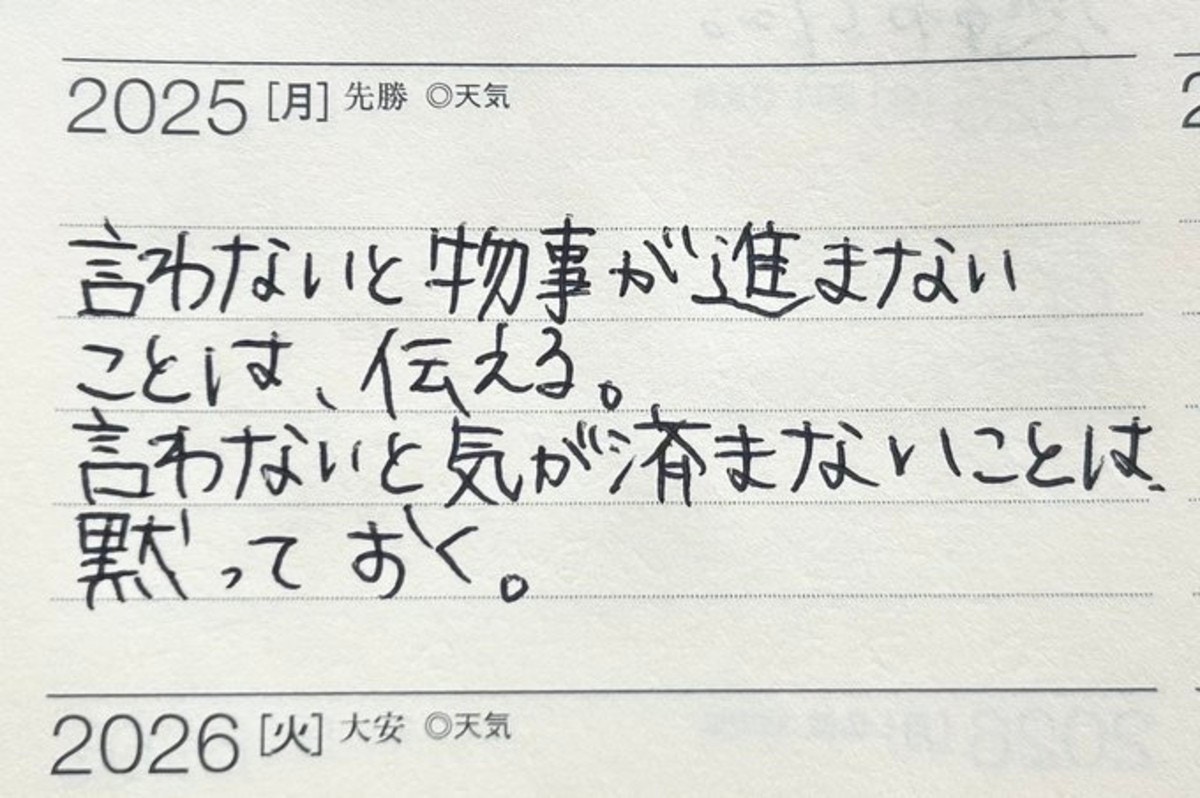 2025 [月] 先勝 ◎天気
言わないと物事が進まない
ことは、伝える。
言わないと気が済まないことは、
黙っておく。
2026 [火] 大安 ◎天気